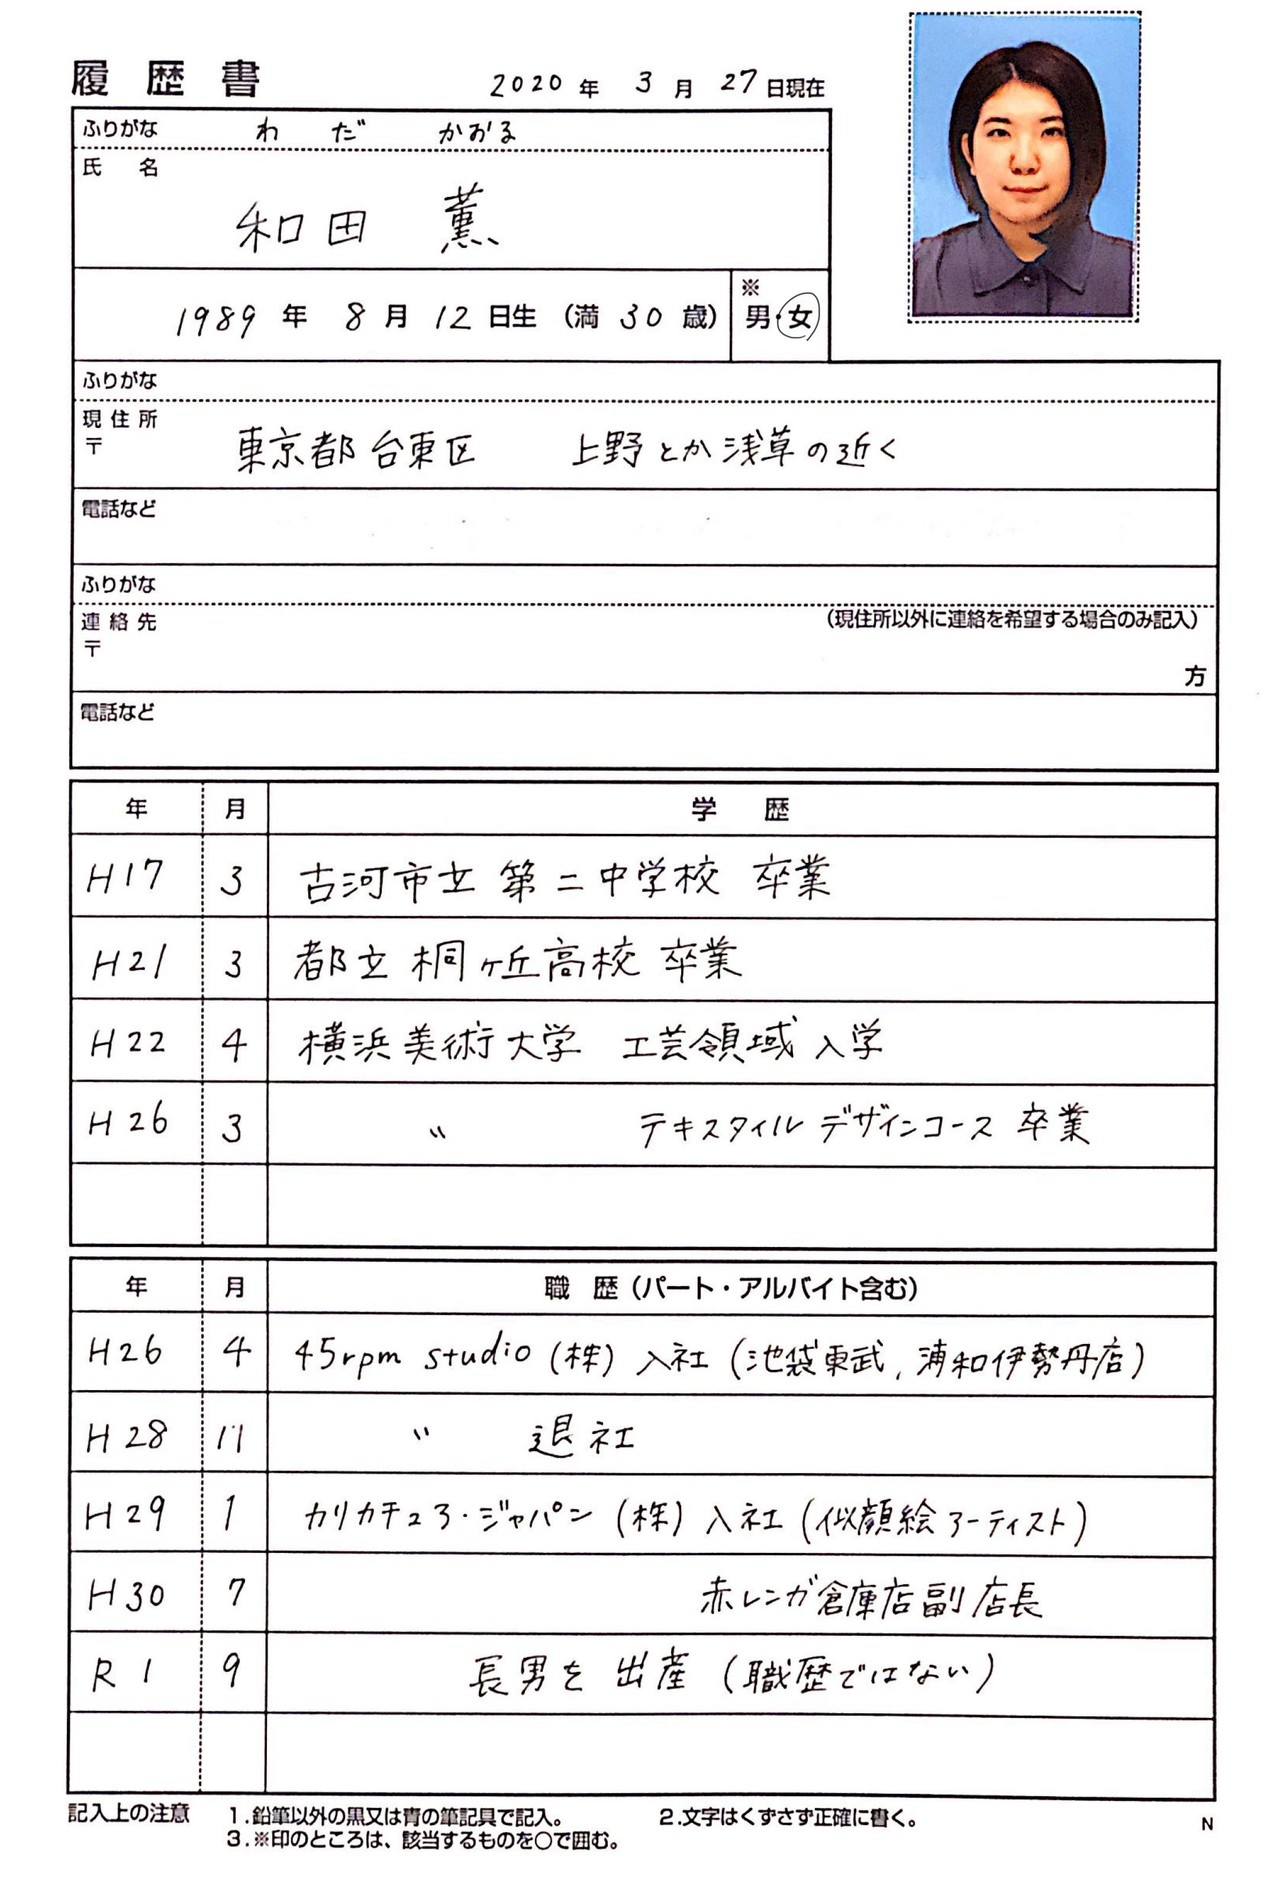 履歴書 2020年 3月 27日現在
ふりがな わ だ かおる
氏 名
和田 薫
1989年 8月 12日生 (満 30 歳)
※
男・女
ふりがな
現住所
〒
東京都台東区 上野とか浅草の近く
電話など
ふりがな
連絡先 (現住所以外に連絡を希望する場合のみ記入)
〒
方
電話など
年 月 学 歴
H17 3 古河市立 第二中学校 卒業
H21 3 都立 桐ヶ丘高校 卒業
H22 4 横浜美術大学 工芸領域 入学
H26 3 〃 テキスタイルデザインコース 卒業
年 月 職 歴(パート・アルバイト含む)
H26 4 45rpm studio (株) 入社 (池袋東武, 浦和伊勢丹店)
H28 11 〃 退社
H29 1 カリカチュア・ジャパン (株) 入社 (似顔絵アーティスト)
H30 7 赤レンガ倉庫店副店長
R1 9 長男を 出産 (職歴ではない)
記入上の注意 1.鉛筆以外の黒又は青の筆記具で記入。 2.文字はくずさず正確に書く。
3.※印のところは、該当するものを○で囲む。
N